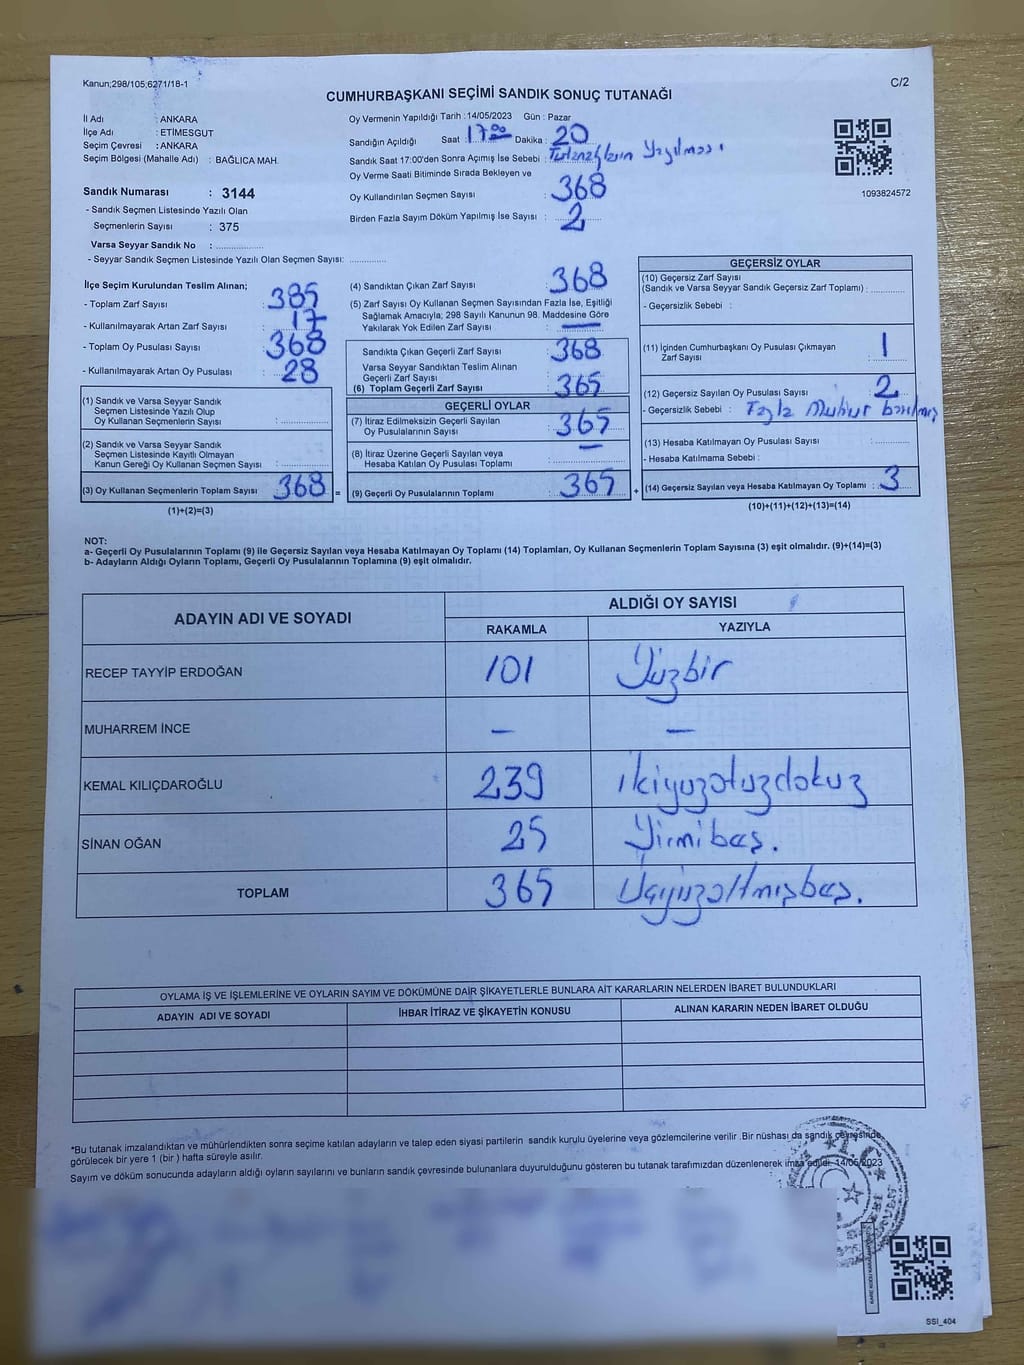 Kanun;298/105;6271/18-1
C/2
CUMHURBAŞKANI SEÇİMİ SANDIK SONUÇ TUTANAĞI
İl Adı : ANKARA
İlçe Adı : ETİMESGUT
Seçim Çevresi : ANKARA
Seçim Bölgesi (Mahalle Adı) : BAĞLICA MAH.
Sandık Numarası : 3144
- Sandık Seçmen Listesinde Yazılı Olan
Seçmenlerin Sayısı : 375
Varsa Seyyar Sandık No :
- Seyyar Sandık Seçmen Listesinde Yazılı Olan Seçmen Sayısı:
Oy Vermenin Yapıldığı Tarih :14/05/2023 Gün : Pazar
Sandığın Açıldığı Saat : 17:00 Dakika : 20
Sandık Saat 17:00'den Sonra Açımış İse Sebebi : Tutanakların Yazılması
Oy Verme Saati Bitiminde Sırada Bekleyen ve
Oy Kullandırılan Seçmen Sayısı : 368
Birden Fazla Sayım Döküm Yapılmış İse Sayısı : 2
1093824572
İlçe Seçim Kurulundan Teslim Alınan;
- Toplam Zarf Sayısı : 385
- Kullanılmayarak Artan Zarf Sayısı : 17
- Toplam Oy Pusulası Sayısı : 368
- Kullanılmayarak Artan Oy Pusulası : 28
(1) Sandık ve Varsa Seyyar Sandık
Seçmen Listesinde Yazılı Olup
Oy Kullanan Seçmenlerin Sayısı :
(2) Sandık ve Varsa Seyyar Sandık
Seçmen Listesinde Kayıtlı Olmayan
Kanun Gereği Oy Kullanan Seçmen Sayısı :
(3) Oy Kullanan Seçmenlerin Toplam Sayısı : 368 =
(1)+(2)=(3)
(4) Sandıktan Çıkan Zarf Sayısı : 368
(5) Zarf Sayısı Oy Kullanan Seçmen Sayısından Fazla İse, Eşitliği
Sağlamak Amacıyla; 298 Sayılı Kanunun 98. Maddesine Göre
Yakılarak Yok Edilen Zarf Sayısı : —
Sandıkta Çıkan Geçerli Zarf Sayısı : 368
Varsa Seyyar Sandıktan Teslim Alınan
Geçerli Zarf Sayısı :
(6) Toplam Geçerli Zarf Sayısı : 365
GEÇERLİ OYLAR
(7) İtiraz Edilmeksizin Geçerli Sayılan
Oy Pusulalarının Sayısı : 365
(8) İtiraz Üzerine Geçerli Sayılan veya
Hesaba Katılan Oy Pusulası Toplamı : —
(9) Geçerli Oy Pusulalarının Toplamı : 365 +
GEÇERSİZ OYLAR
(10) Geçersiz Zarf Sayısı
(Sandık ve Varsa Seyyar Sandık Geçersiz Zarf Toplamı) :
- Geçersizlik Sebebi :
(11) İçinden Cumhurbaşkanı Oy Pusulası Çıkmayan
Zarf Sayısı : 1
(12) Geçersiz Sayılan Oy Pusulası Sayısı : 2
- Geçersizlik Sebebi : Fazla Mühür basılmış
(13) Hesaba Katılmayan Oy Pusulası Sayısı :
- Hesaba Katılmama Sebebi :
(14) Geçersiz Sayılan veya Hesaba Katılmayan Oy Toplamı : 3
(10)+(11)+(12)+(13)=(14)
NOT:
a- Geçerli Oy Pusulalarının Toplamı (9) ile Geçersiz Sayılan veya Hesaba Katılmayan Oy Toplamı (14) Toplamları, Oy Kullanan Seçmenlerin Toplam Sayısına (3) eşit olmalıdır. (9)+(14)=(3)
b- Adayların Aldığı Oyların Toplamı, Geçerli Oy Pusulalarının Toplamına (9) eşit olmalıdır.
ADAYIN ADI VE SOYADI
ALDIĞI OY SAYISI
RAKAMLA YAZIYLA
RECEP TAYYİP ERDOĞAN 101 Yüzbir
MUHARREM İNCE — —
KEMAL KILIÇDAROĞLU 239 ikiyüzotuzdokuz
SİNAN OĞAN 25 Yirmibeş.
TOPLAM 365 Üçyüzaltmışbeş.
OYLAMA İŞ VE İŞLEMLERİNE VE OYLARIN SAYIM VE DÖKÜMÜNE DAİR ŞİKAYETLERLE BUNLARA AİT KARARLARIN NELERDEN İBARET BULUNDUKLARI
ADAYIN ADI VE SOYADI İHBAR İTİRAZ VE ŞİKAYETİN KONUSU ALINAN KARARIN NEDEN İBARET OLDUĞU
*Bu tutanak imzalandıktan ve mühürlendikten sonra seçime katılan adayların ve talep eden siyasi partilerin sandık kurulu üyelerine veya gözlemcilerine verilir .Bir nüshası da sandık çevresinde
görülecek bir yere 1 (bir ) hafta süreyle asılır.
Sayım ve döküm sonucunda adayların aldığı oyların sayılarını ve bunların sandık çevresinde bulunanlara duyurulduğunu gösteren bu tutanak tarafımızdan düzenlenerek imza edildi. 14/05/2023
T.C.
SSI_404